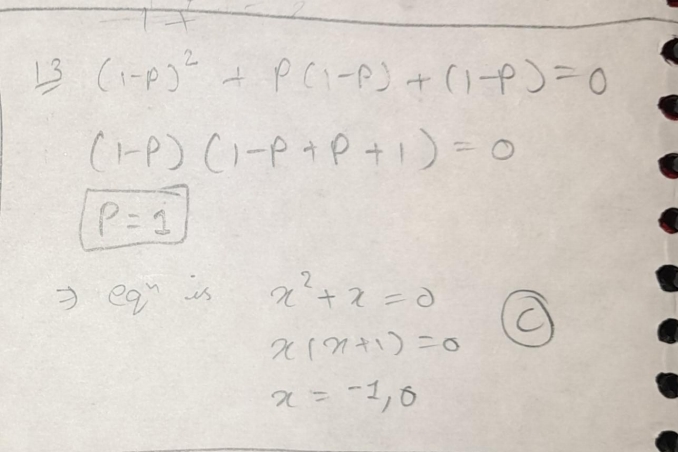 13 (1-P)² + P(1-P) + (1-P) = 0
(1-P) (1-P+P+1) = 0
P = 1
⇒ eqⁿ is x² + x = 0
x(x+1) = 0 C
x = -1, 0